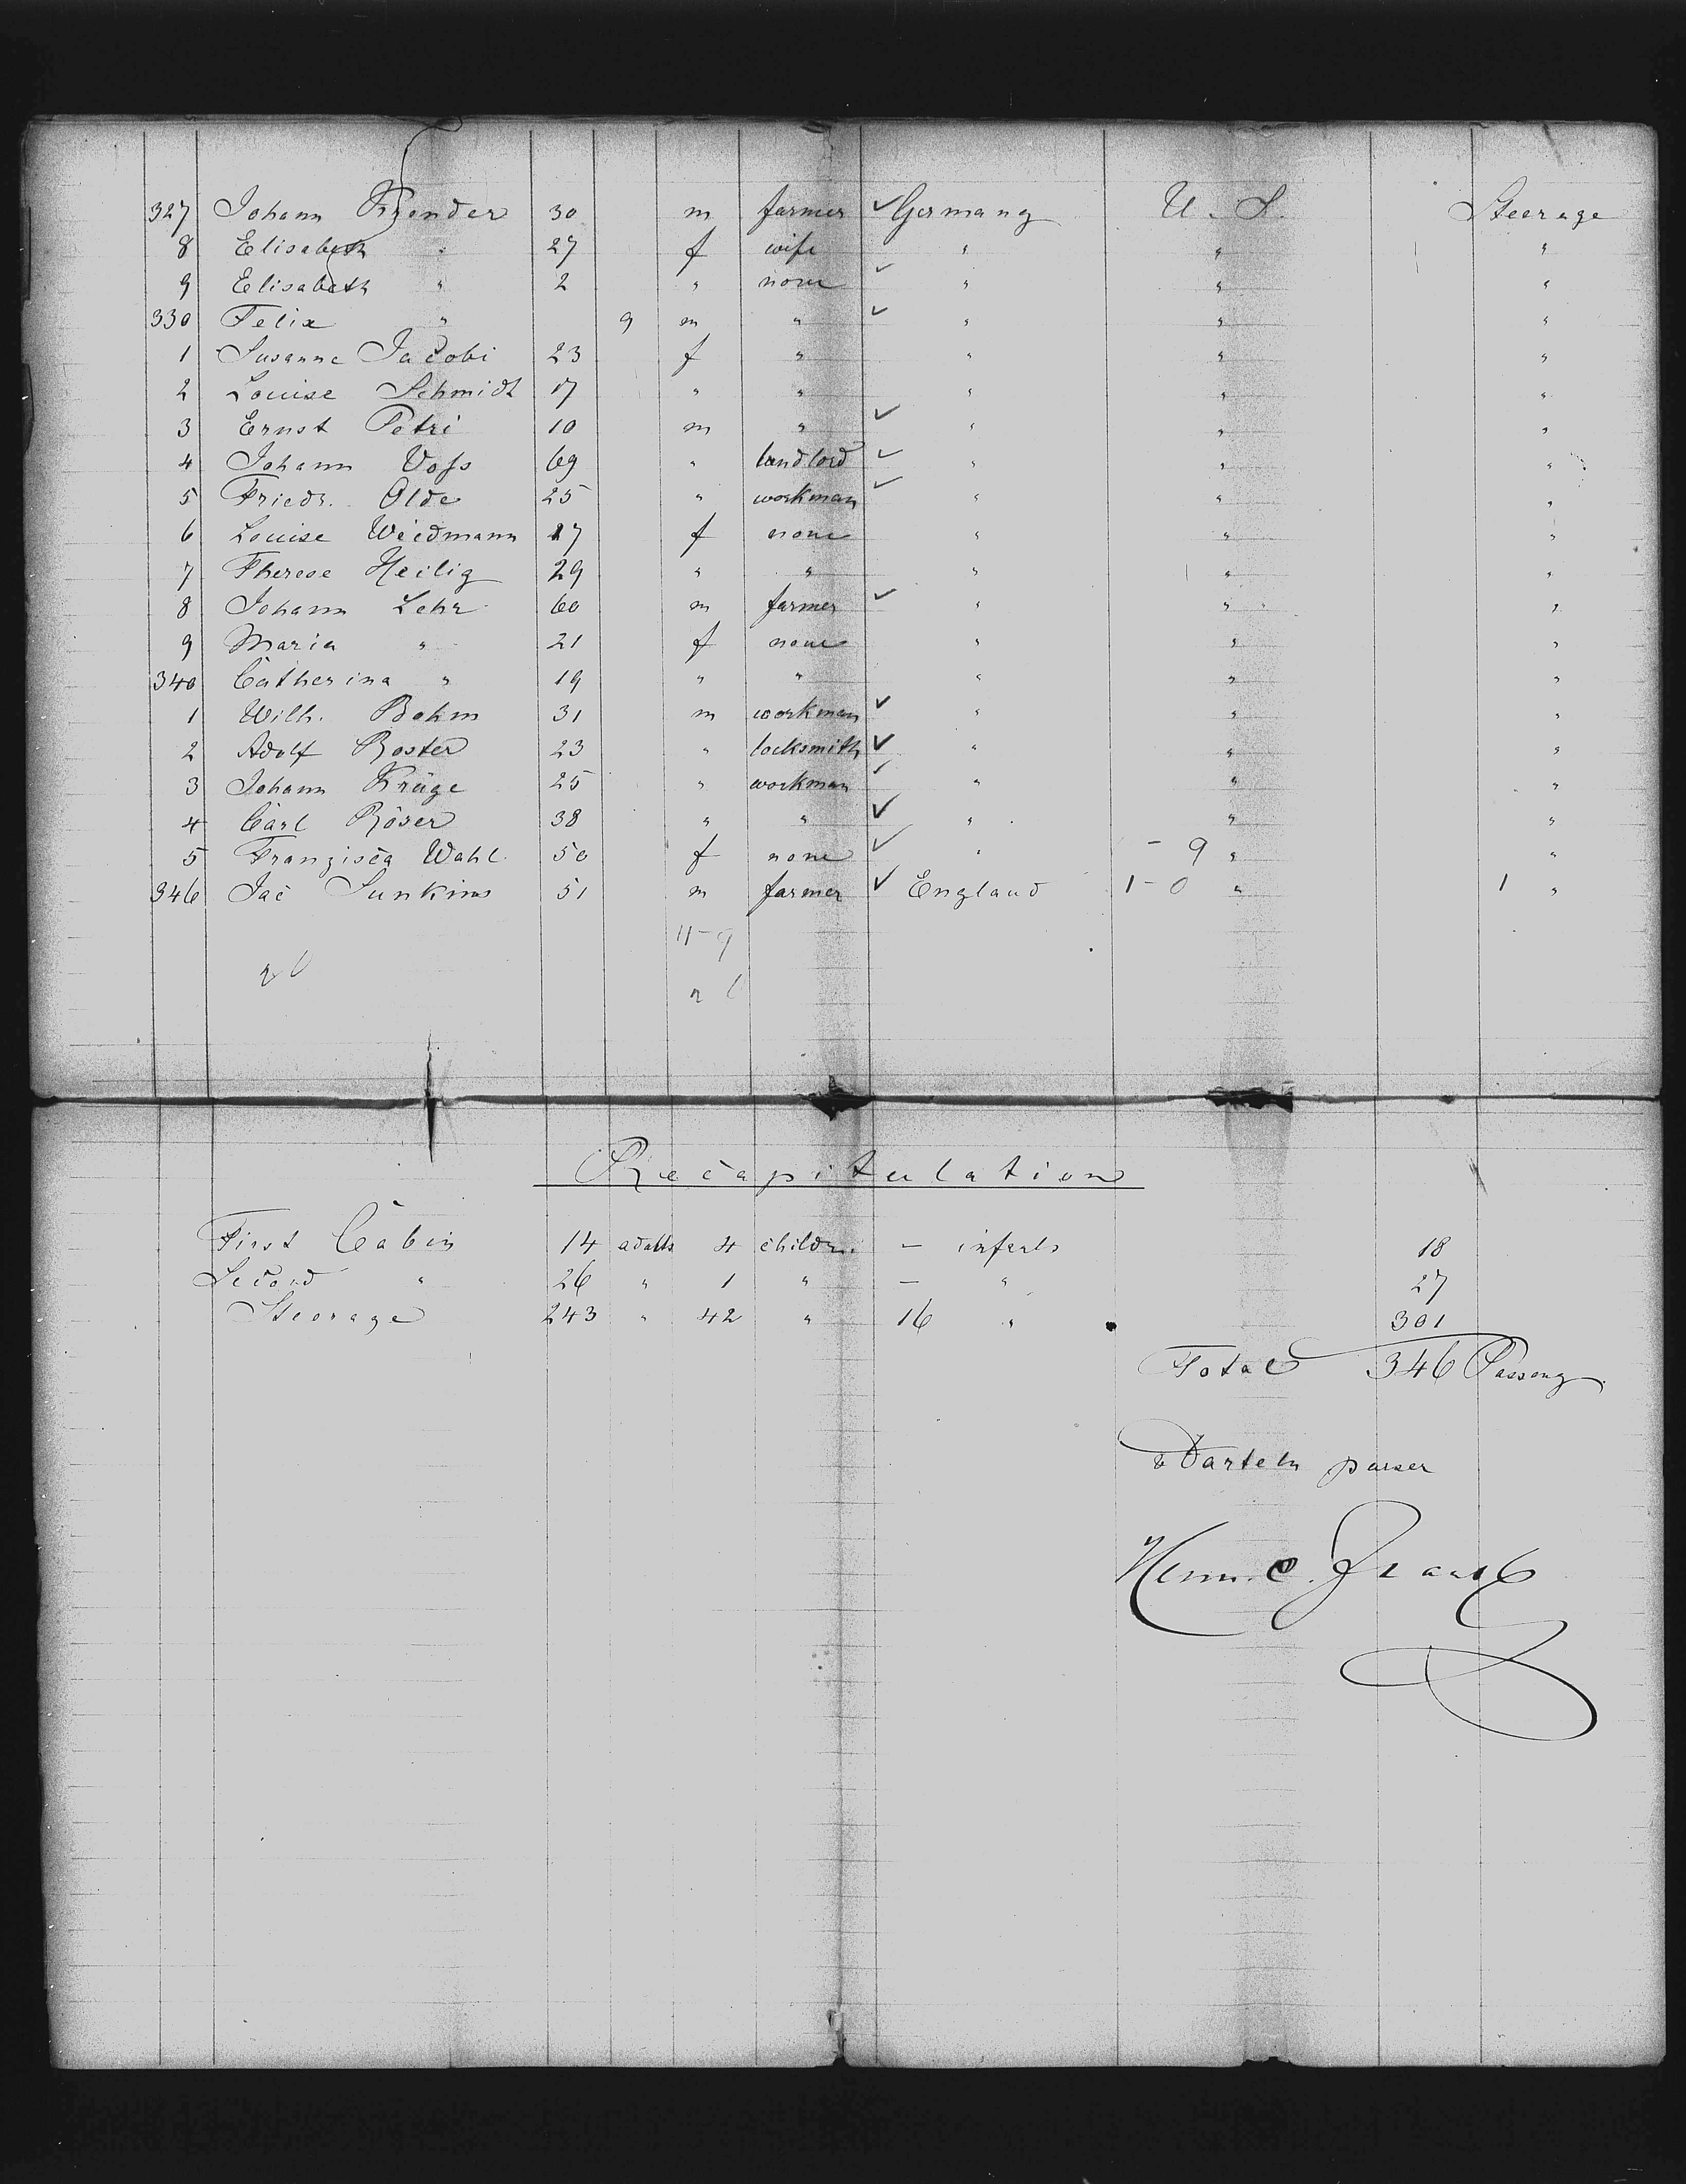 327 Johann Kronder 30 m farmer ✓ Germany U. S. Steerage
8 Elisabeth " 27 f wife " " "
9 Elisabeth " 2 " none ✓ " " "
330 Felix " 9 m " ✓ " " "
1 Susanne Jacobi 23 f " " " "
2 Louise Schmidt 17 " " " " "
3 Ernst Petri 10 m " ✓ " " "
4 Johann Voss 69 " landlord ✓ " " "
5 Friedr. Olde 25 " workman ✓ " " "
6 Louise Weidmann 17 f none " " "
7 Therese Heilig 29 " " " " "
8 Johann Lehr 60 m farmer ✓ " " "
9 Maria " 21 f none " " "
340 Catherina " 19 " " " " "
1 Wilh. Bohm 31 m workman ✓ " " "
2 Adolf Roster 23 " locksmith ✓ " " "
3 Johann Krüge 25 " workman ✓ " " "
4 Carl Röser 38 " " ✓ " " "
5 Franzisca Wahl 50 f none ✓ " - 9 " "
346 Jac Junkins 51 m farmer ✓ England 1-0 " 1 "
11-9
Recapitulation
First Cabin 14 adults 4 childr. - infants 18
Second " 26 " 1 " - " 27
Steerage 243 " 42 " 16 " 301
Total 346 Passeng
Darteln purser